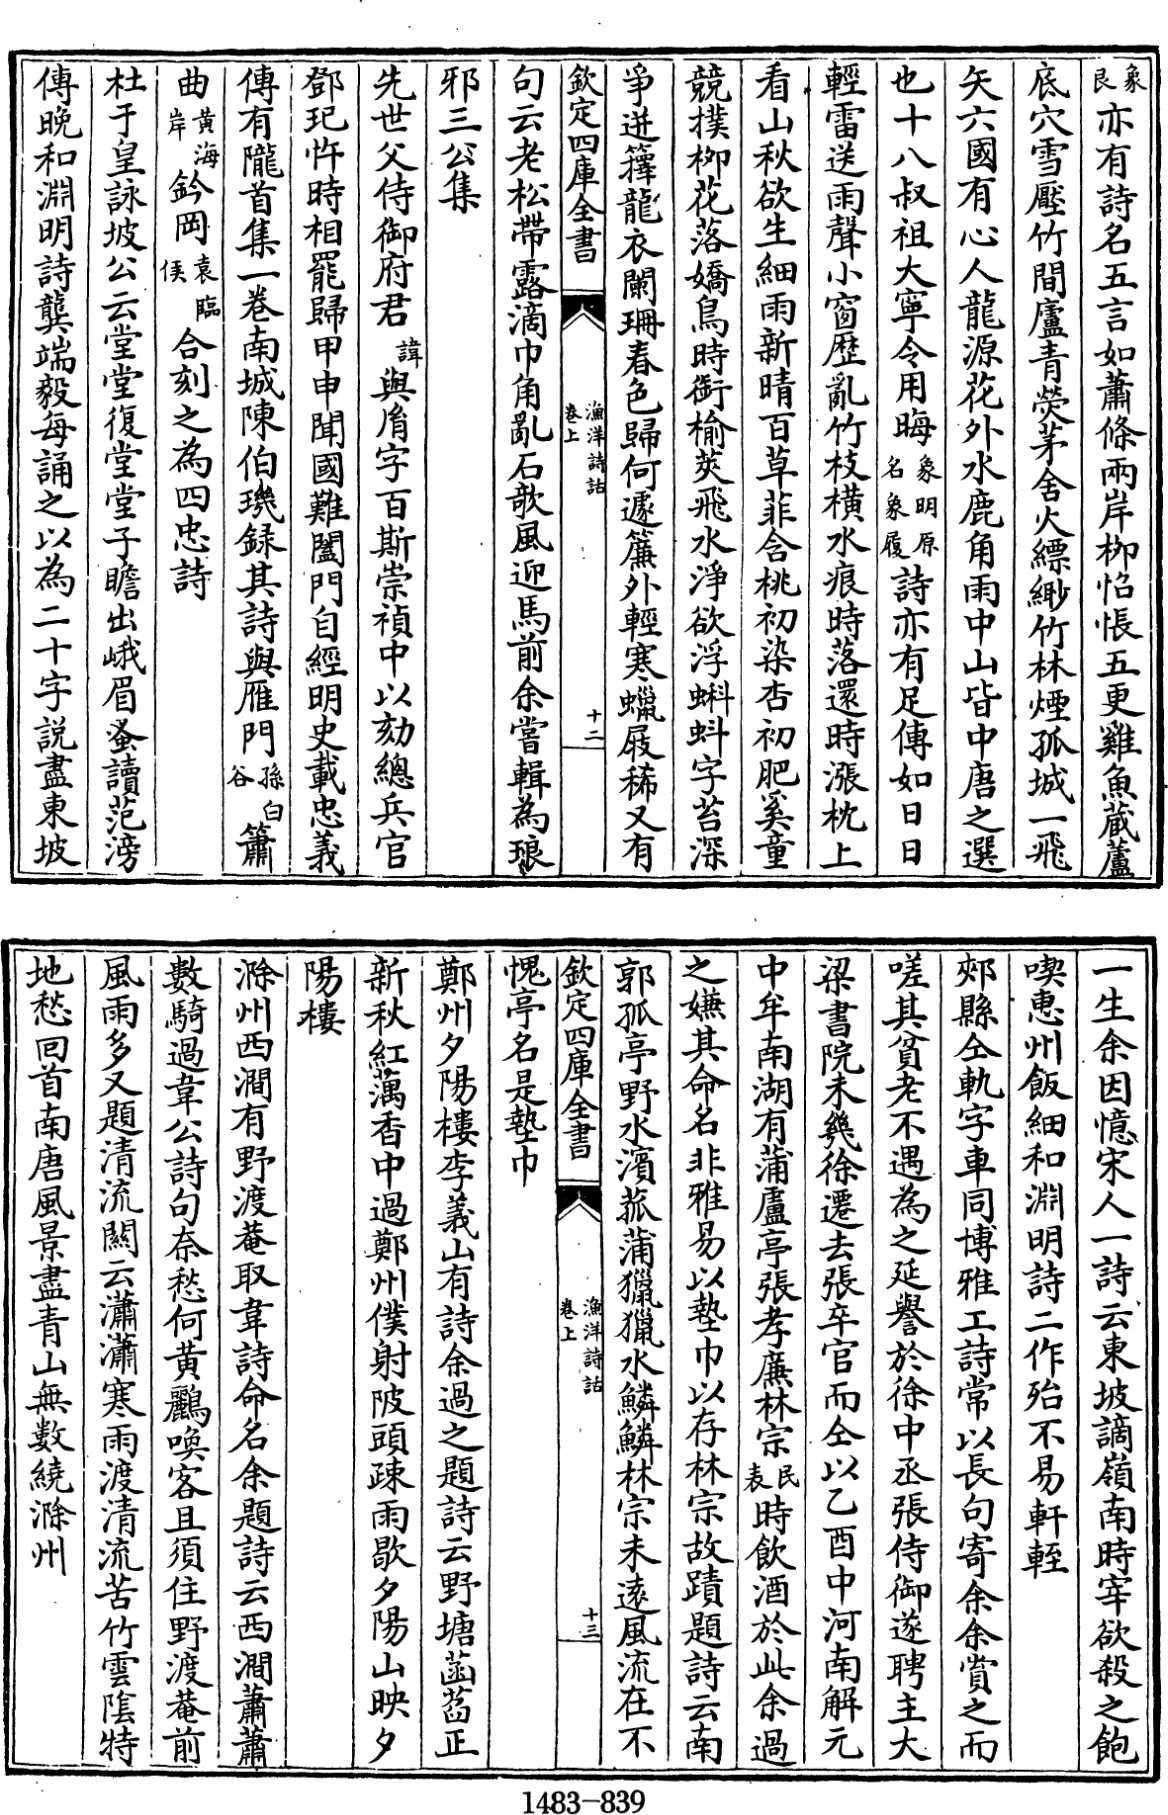 象艮亦有詩名五言如蕭條兩岸柳怊悵五更雞魚蔵蘆
底穴雪壓竹間廬青熒茅舍火縹緲竹林煙孤城一飛
矢六國有心人龍源花外水鹿角雨中山皆中唐之選
也十八叔祖大寧令用晦象明原名象履詩亦有足傳如日日
輕雷送雨聲小窗歴亂竹枝橫水痕時落還時漲枕上
看山秋欲生細雨新晴百草菲含桃初染杏初肥奚童
競撲栁花落嬌鳥時銜榆莢飛水淨欲浮蝌蚪字苔深
爭迸籜龍衣闌珊春色歸何遽簾外輕寒蠟屐稀又有
欽定四庫全書
漁洋詩話
卷上
十二
句云老松帶露滴巾角亂石歌風迎馬前余嘗輯為琅
邪三公集
先世父侍御府君諱與胤字百斯崇禎中以劾總兵官
鄧玘忤時相罷歸甲申聞國難闔門自經明史載忠義
傳有隴首集一卷南城陳伯璣録其詩與雁門孫白谷簫
曲黄海岸鈐岡袁臨侯合刻之為四忠詩
杜于皇詠坡公云堂堂復堂堂子瞻出峨眉蚤讀范滂
傳晚和淵明詩龔端毅每誦之以為二十字説盡東坡
一生余因憶宋人一詩云東坡謫嶺南時宰欲殺之飽
喫惠州飯細和淵明詩二作殆不易軒輊
郟縣仝軌字車同博雅工詩常以長句寄余余賞之而
嗟其貧老不遇為之延譽於徐中丞張侍御遂聘主大
梁書院未幾徐遷去張卒官而仝以乙酉中河南解元
中牟南湖有蒲盧亭張孝廉林宗民表時飲酒於此余過
之嫌其命名非雅易以墊巾以存林宗故蹟題詩云南
郭孤亭野水濱菰蒲獵獵水鱗鱗林宗未遠風流在不
欽定四庫全書
漁洋詩話
卷上
十三
愧亭名是墊巾
鄭州夕陽樓李義山有詩余過之題詩云野塘菡萏正
新秋紅藕香中過鄭州僕射陂頭疎雨歇夕陽山映夕
陽樓
滁州西澗有野渡菴取韋詩命名余題詩云西澗蕭蕭
數騎過韋公詩句奈愁何黄鸝喚客且須住野渡菴前
風雨多又題清流關云瀟瀟寒雨渡清流苦竹雲陰特
地愁回首南唐風景盡青山無數繞滁州
1483-839